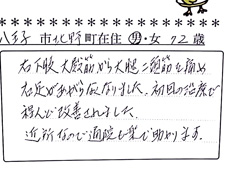 八王子市北野町在住 男・女 72歳
右下肢大殿筋から大腿二頭筋を痛め
右足があがらなくなりました。初回の治療で
ほとんど改善されました。
近所なので通院も楽で助かります。